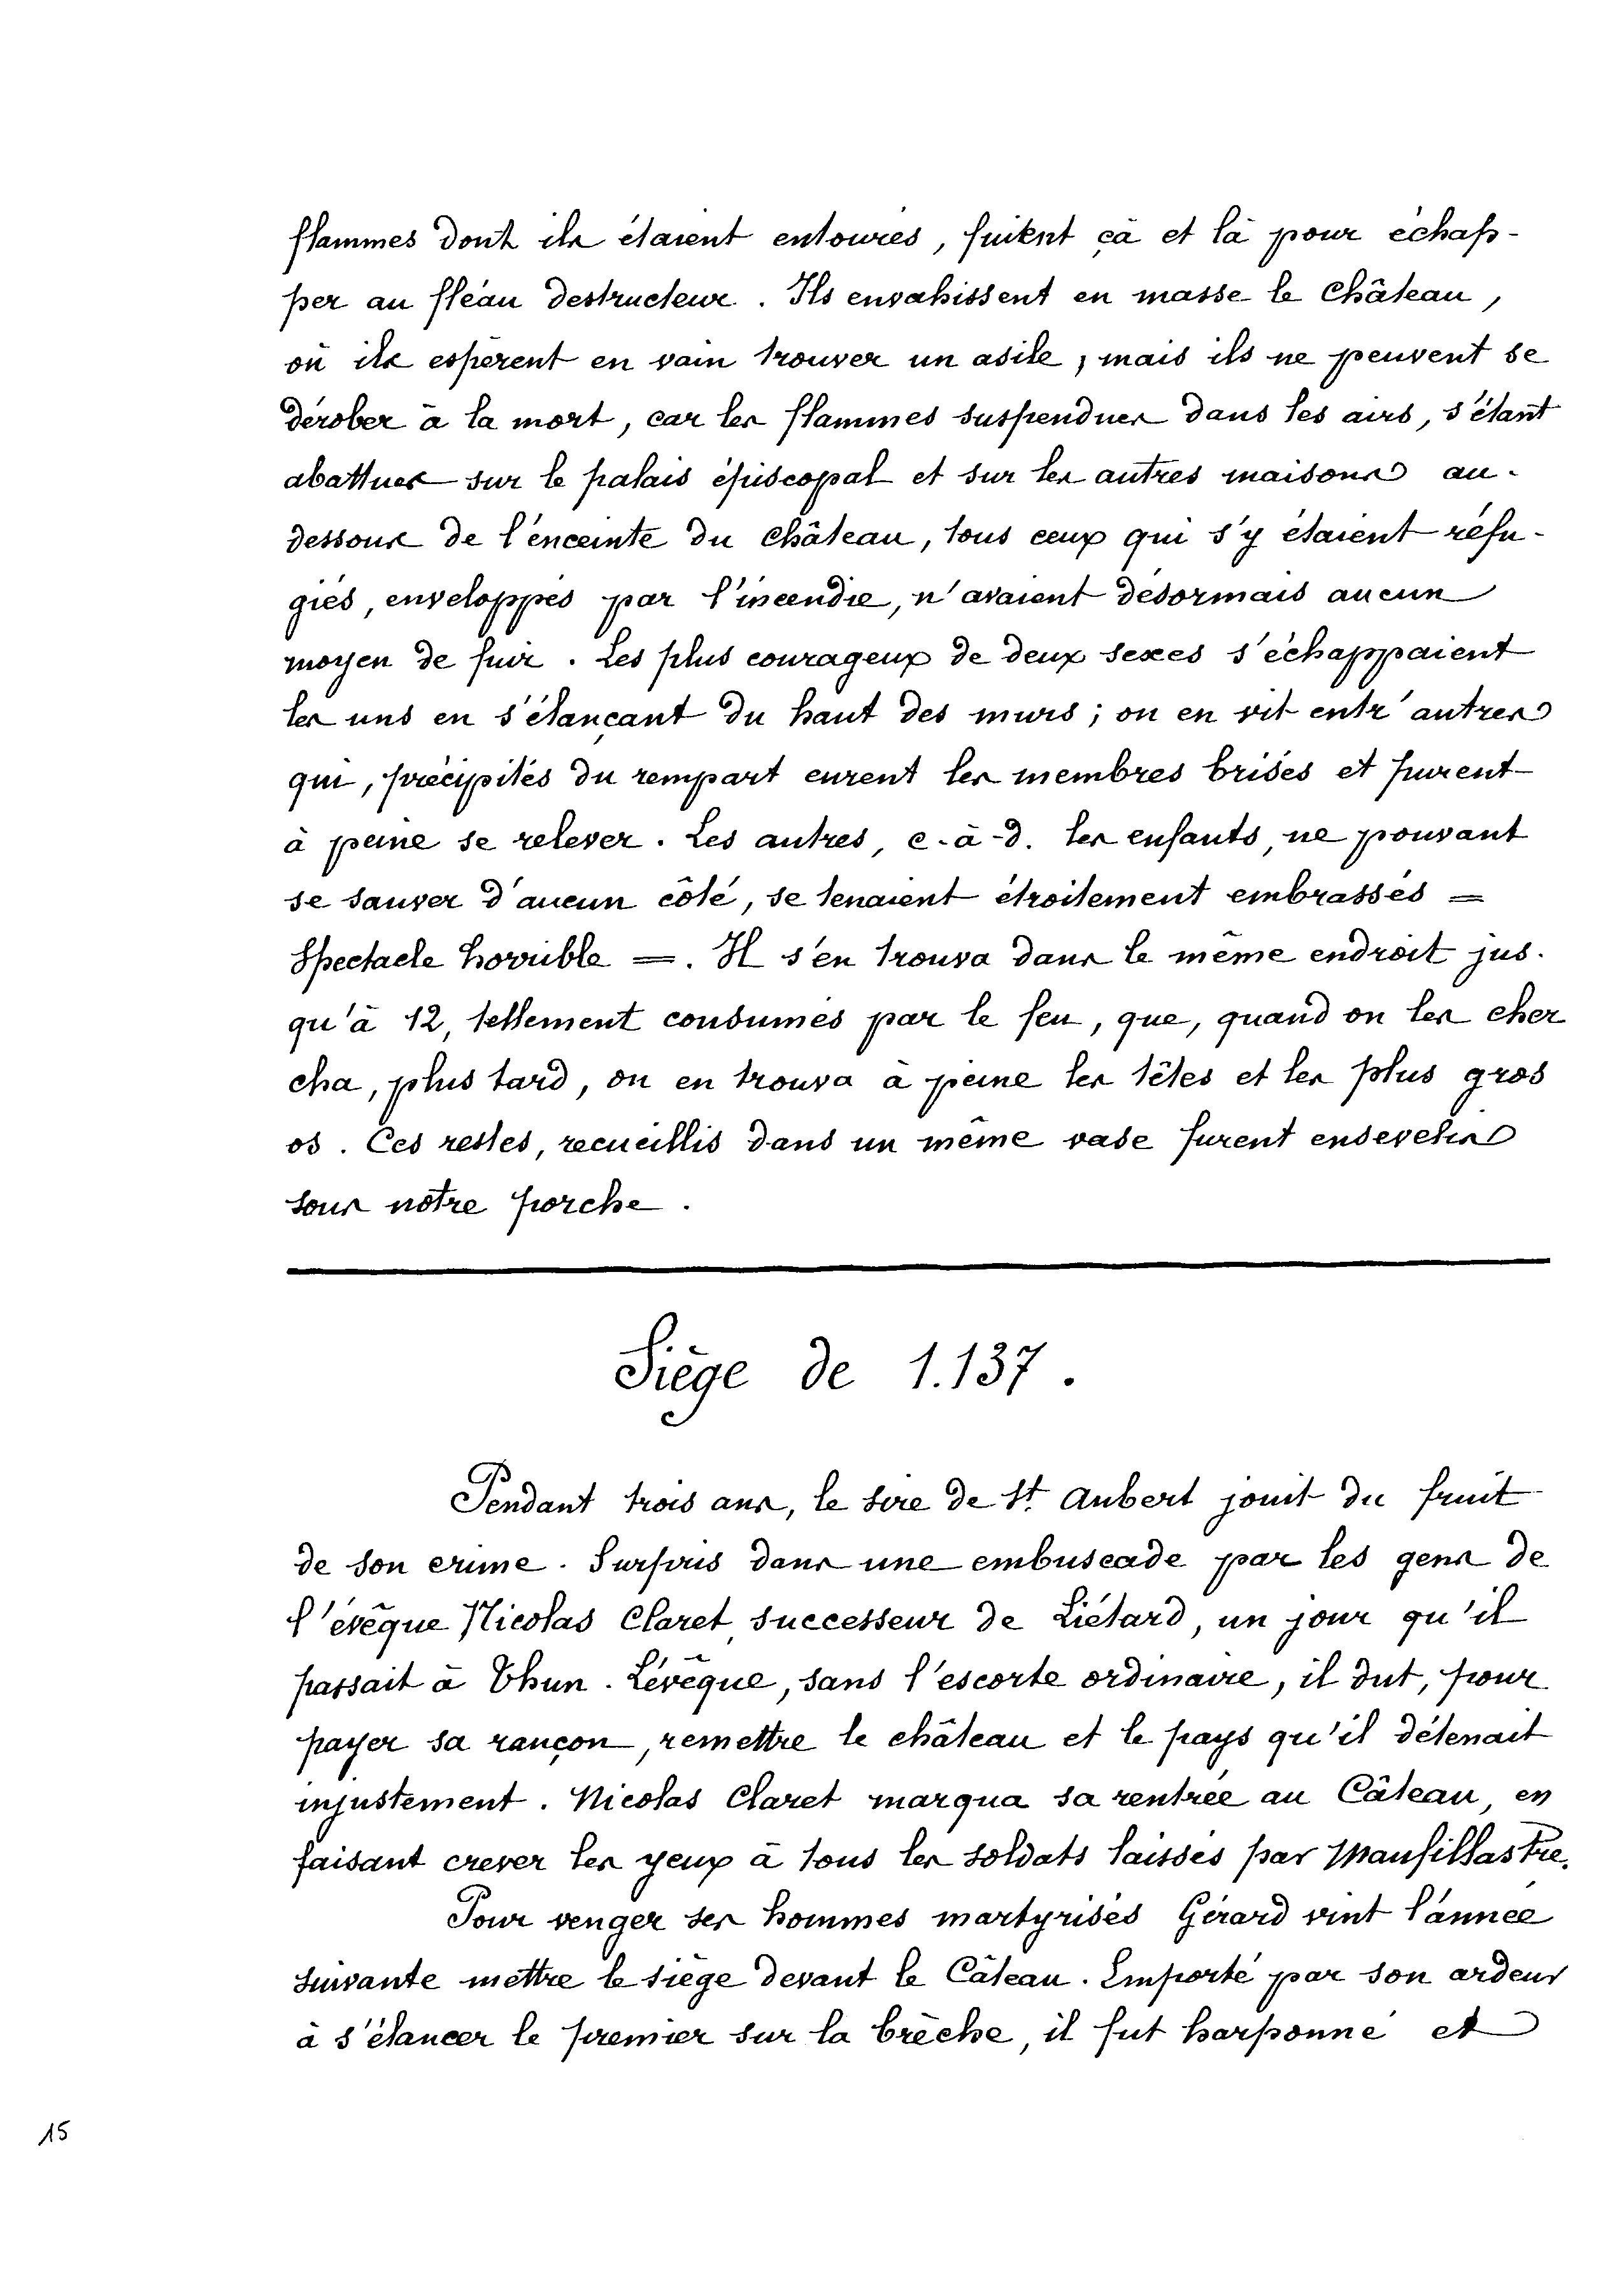 flammes dont ils étaient entourés, fuient çà et là pour échap-
per au fléau destructeur. Ils envahissent en masse le Château,
où ils espèrent en vain trouver un asile, mais ils ne peuvent se
dérober à la mort, car les flammes suspendues dans les airs, s'étant
abattues sur le palais épiscopal et sur les autres maisons au-
dessous de l'enceinte du Château, tous ceux qui s'y étaient réfu-
giés, enveloppés par l'incendie, n'avaient désormais aucun
moyen de fuir. Les plus courageux de deux sexes s'échappaient
les uns en s'élançant du haut des murs; on en vit entr'autres
qui, précipités du rempart eurent les membres brisés et purent
à peine se relever. Les autres, c.à-d. les enfants, ne pouvant
se sauver d'aucun côté, se tenaient étroitement embrassés =
Spectacle horrible =. Il s'en trouva dans le même endroit jus.
qu'à 12, tellement consumés par le feu, que, quand on les cher
cha, plus tard, on en trouva à peine les têtes et les plus gros
os. Ces restes, recueillis dans un même vase furent ensevelis
sous notre porche.
Siège de 1.137.
Pendant trois ans, le sire de St. Aubert jouit du fruit
de son crime. Surpris dans une embuscade par les gens de
l'évêque Nicolas Claret, successeur de Liétard, un jour qu'il
passait à Thun. Lévêque, sans l'escorte ordinaire, il dut, pour
payer sa rançon, remettre le château et le pays qu'il détenait
injustement. Nicolas Claret marqua sa rentrée au Câteau, en
faisant crever les yeux à tous les soldats laissés par Maufillastre.
Pour venger ses hommes martyrisés Gérard vint l'année
suivante mettre le siège devant le Câteau. Emporté par son ardeur
à s'élancer le premier sur la brèche, il fut harponné et
15